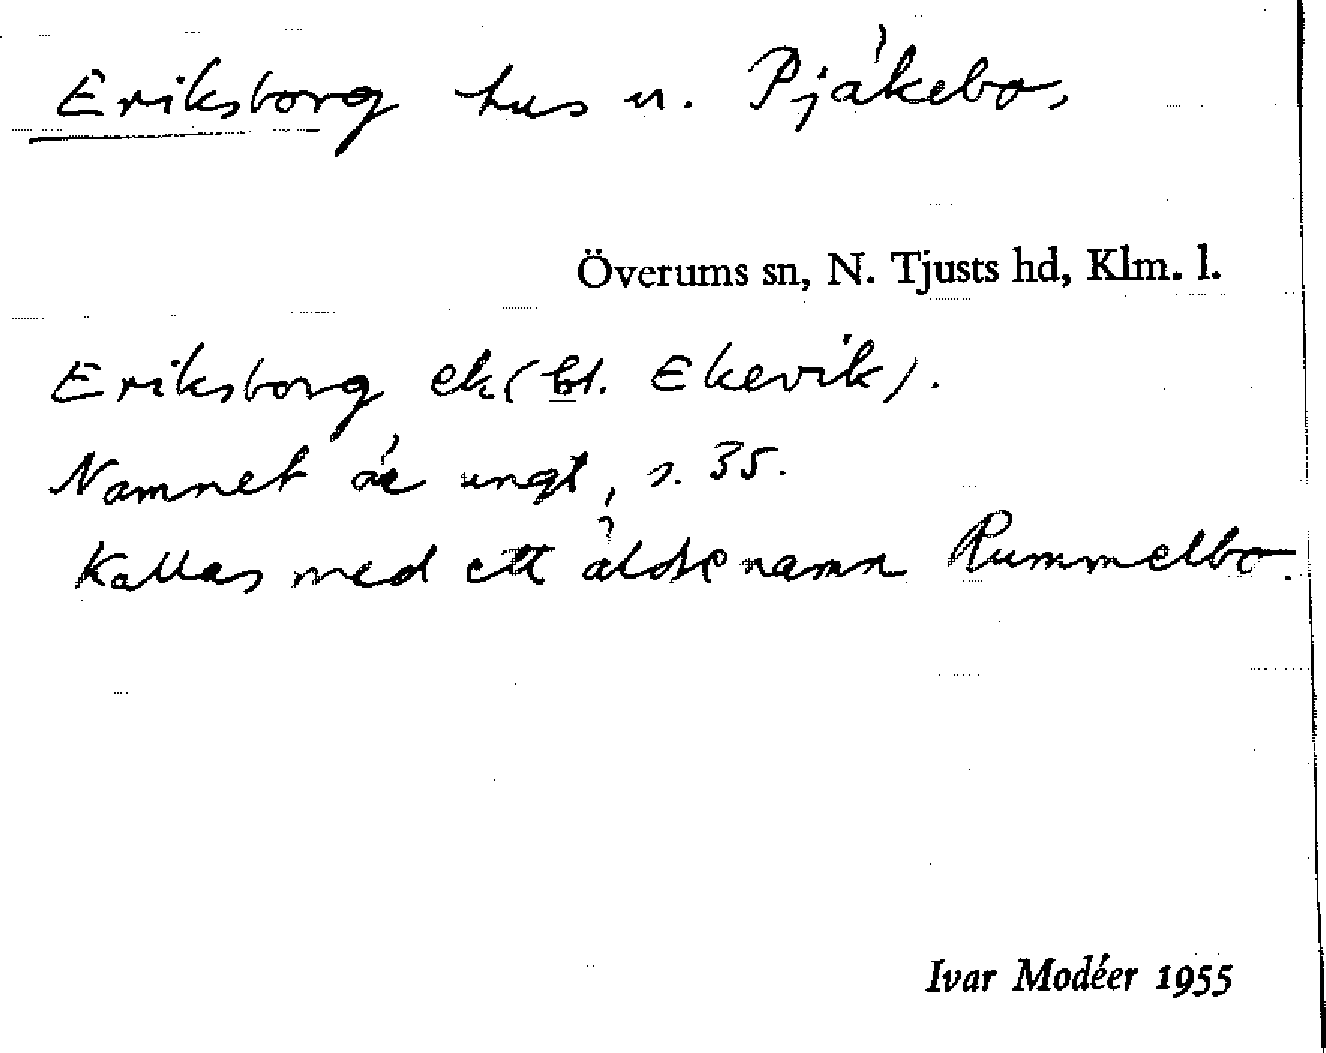 Eriksborg hus u. Pjäkebo,
Överums sn, N. Tjusts hd, Klm. l.
Eriksborg ek (bl. Ekevik).
Namnet är ungt, s. 35.
Kallas med ett äldre namn Rummelbo.
Ivar Modéer 1955